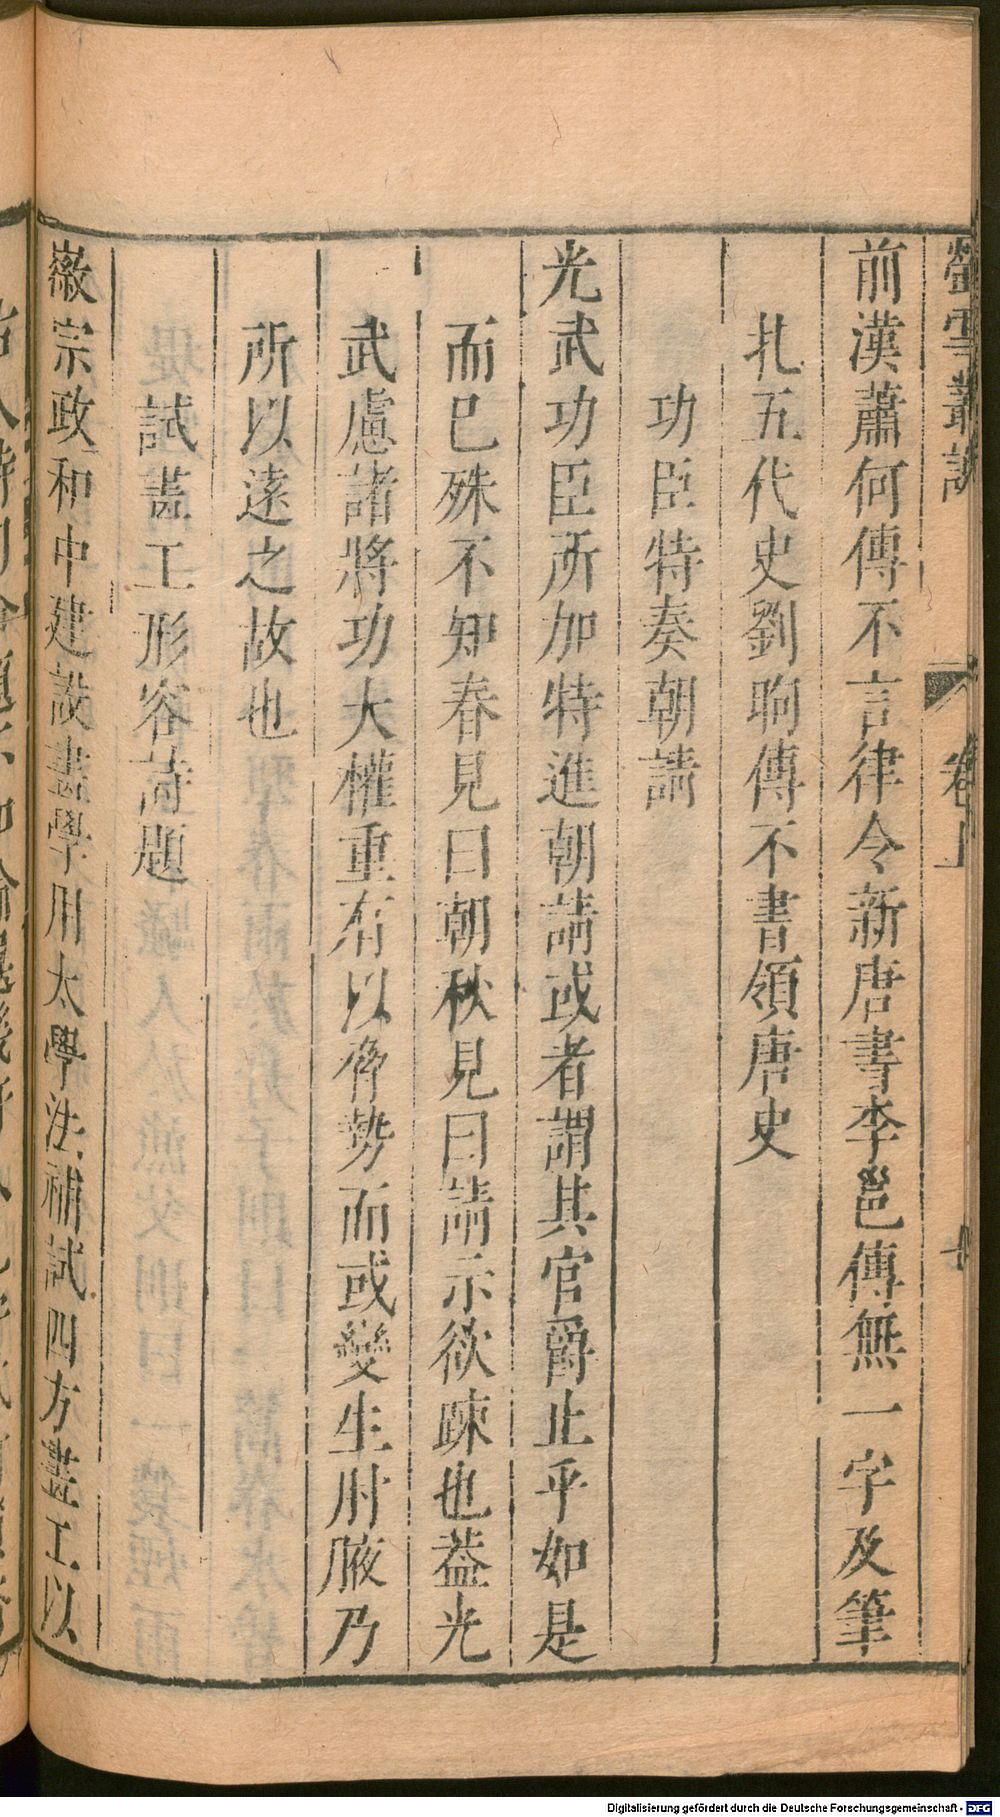 螢雪叢說 卷上 七
前漢蕭何傳不言律令新唐書李邕傳無一字及筆
札五代史劉昫傳不書領唐史
功臣特奏朝請
光武功臣所加特進朝請或者謂其官爵止乎如是
而已殊不知春見曰朝秋見曰請示欲踈也葢光
武慮諸將功大權重有以脅勢而或變生肘腋乃
所以遠之故也
試畫工形容詩題
徽宗政和中建設畫學用太學法補試四方畫工以
Digitalisierung gefördert durch die Deutsche Forschungsgemeinschaft - DFG